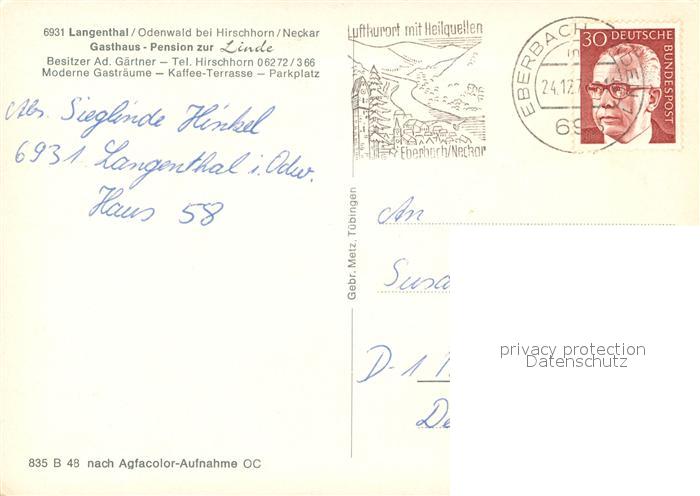 6931 Langenthal/Odenwald bei Hirschhorn/Neckar
Gasthaus - Pension zur Linde
Besitzer Ad. Gärtner — Tel. Hirschhorn 06272/366
Moderne Gasträume — Kaffee-Terrasse — Parkplatz
Abs. Sieglinde Hinkel
6931 Langenthal i. Odw.
Haus 58
Luftkurort mit Heilquellen
Eberbach/Neckar
EBERBACH
24.12.
69
30 DEUTSCHE
BUNDESPOST
Gebr. Metz, Tübingen
An
Susa
D-1
De
privacy protection
Datenschutz
835 B 48 nach Agfacolor-Aufnahme OC